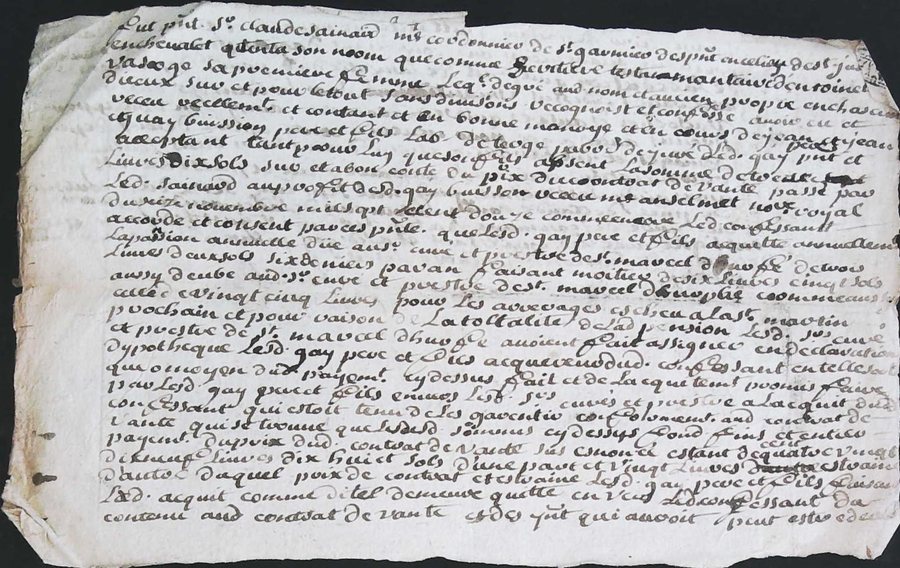 fut pnt. Sr. claude sainard mre cordonnier de st garmier despnt en celieu de st Ju
en chevalet q tenta son nom que comme heritiere testamantaire d'en toinet
sa premiere femme Leql. de gre aud nom et au cien propre en chascun
dieux sur et pour letout sans divisions recognoist et confesse avoir eu et
receu reellemt. et contant et en bonne monoye et en cours de jean et jean
gay buisson pere et fils Lab de jure led. gay pnt et
acceptant tant pour luy que son fils absent La somme de trente
Livres dix sols sur et a bon conte du prix du contrat de vante passe par
Led. sainard au profit desd. gay buisson receu me anselmet nore. royal
du seize novembre mil sept cent douze commeencore Led confessant
accorde et consent par ces pnte. que Lesd. gay pere et fils acquitte annuellem
La pansion annuelle due au sr. curé et prestre de st. marcel d'hurfé de trois
Livres deux sols six deniers par an faisant moitier de six Livres cinq sols
aussy deube aud. sr. cure et prestre de st. marcel dhurphe comme aussi
celle de vingt cinq Livres pour Les arrerages escheu a la st. martin
prochain et pour raison de La tottalite de La pension Lesd. srs. cure
et prestre de st. marcel d'hurfe avoient fait assigner en declaration
dypotheque Lesd. gay pere et fils acquereurs dud. confessant en telle sorte
que o moyen du payemt. cy dessus fait et de Lacquitemt. promis faire
par Lesd. gay pere et fils envers Lesd. srs cures et prestre a Lacquit dud.
confessant qui estoit tenu de les garentir conformement. aud contrat de
vante qui se trouve que Lesdes. sommes cy dessus font fins et entier
payemt. du prix dud. contrat de vante sus enoncé estant de cent quatre vingt
dixneuf Livres dix huict sols d'une part et vingt Livres destraine
d'autre duquel prix de contrat et estraine Lesd. gay pere et fils
Led. acquit comme dit el demeure quitte en vers Led confessant du
contenu aud contrat de vante et des jnt qui auroit peut estre